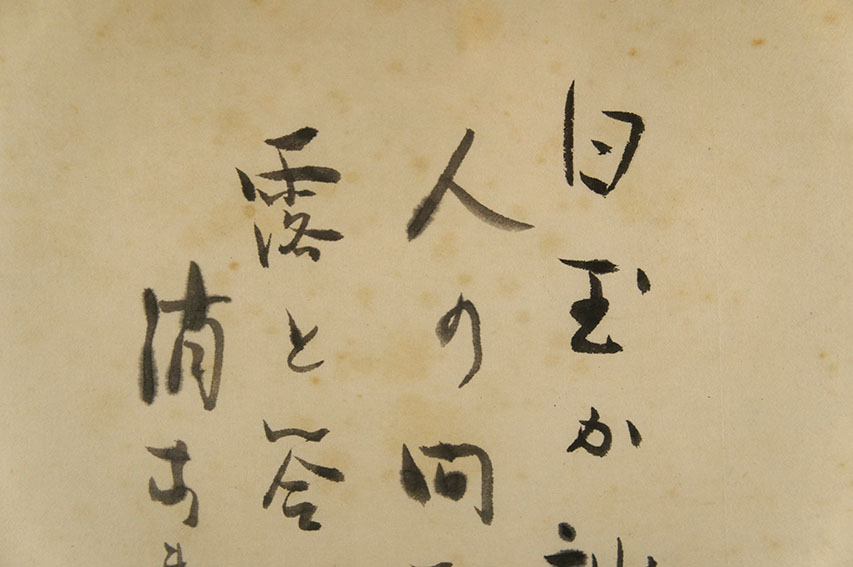 白玉か
人の問
露と答
消な